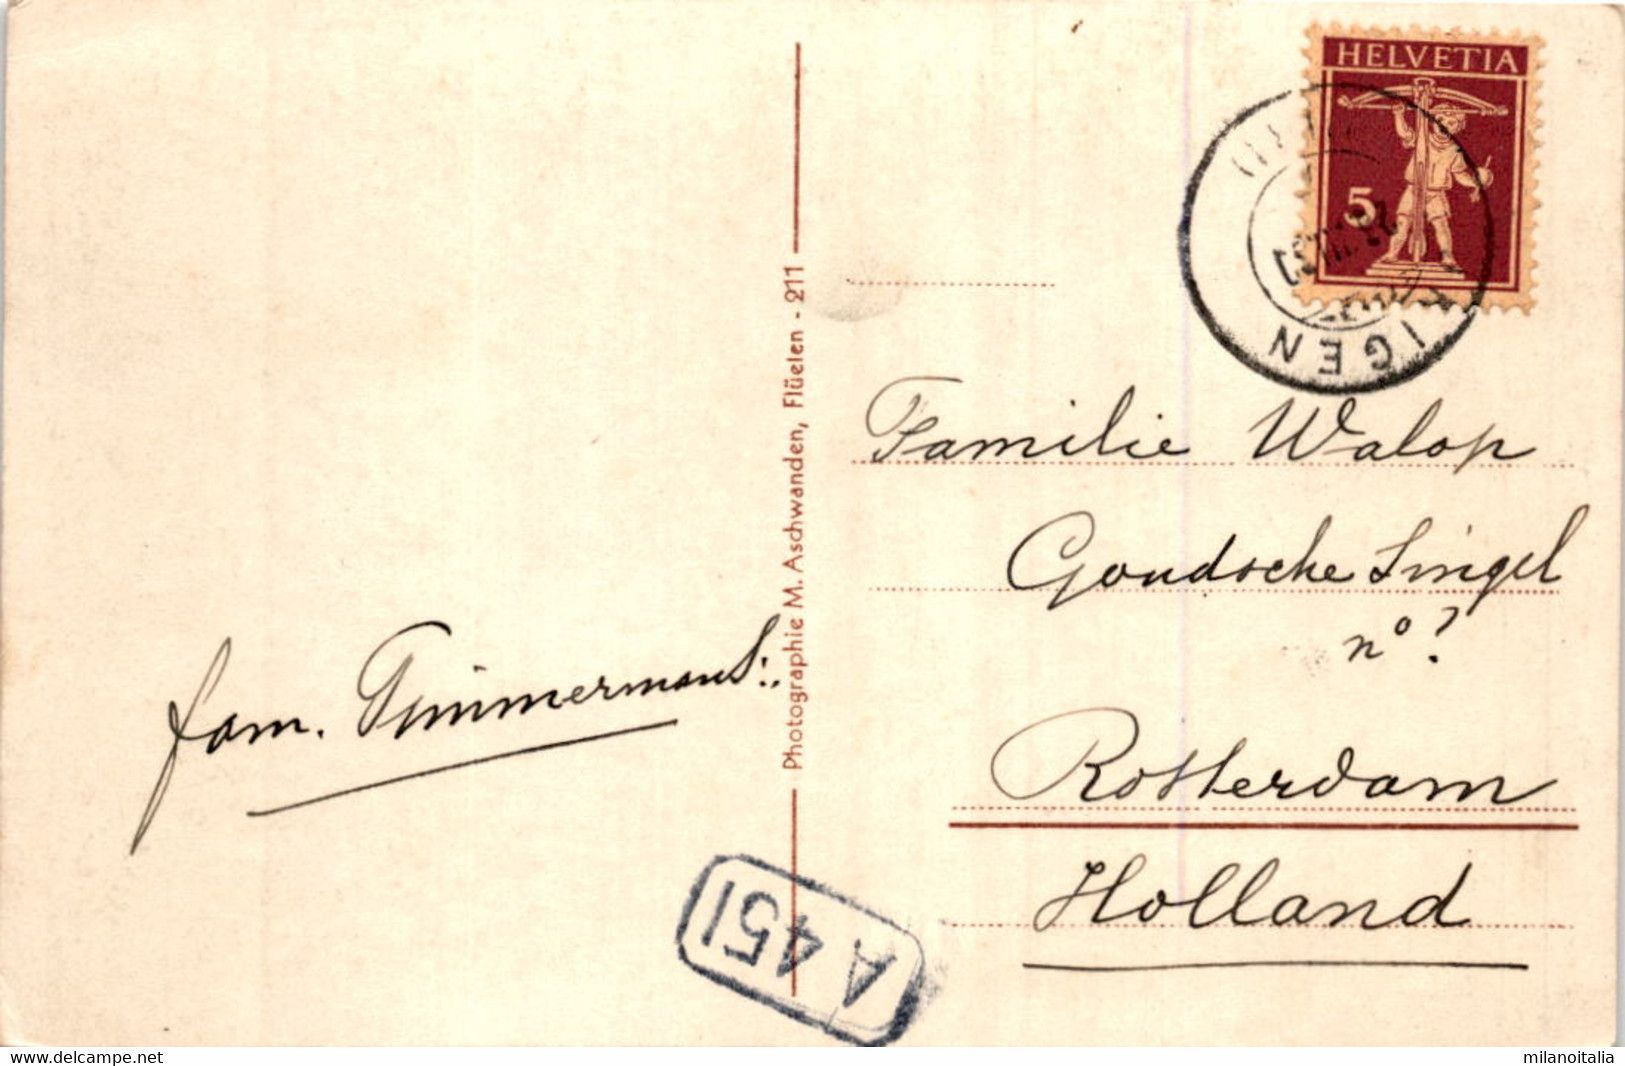 HELVETIA
5
IGEN
Familie Walop
Goudsche Singel
nº?
Rotterdam
Holland
fam. Timmermans.
Photographie M. Aschwanden, Flüelen - 211
A 451
www.delcampe.net
milanoitalia